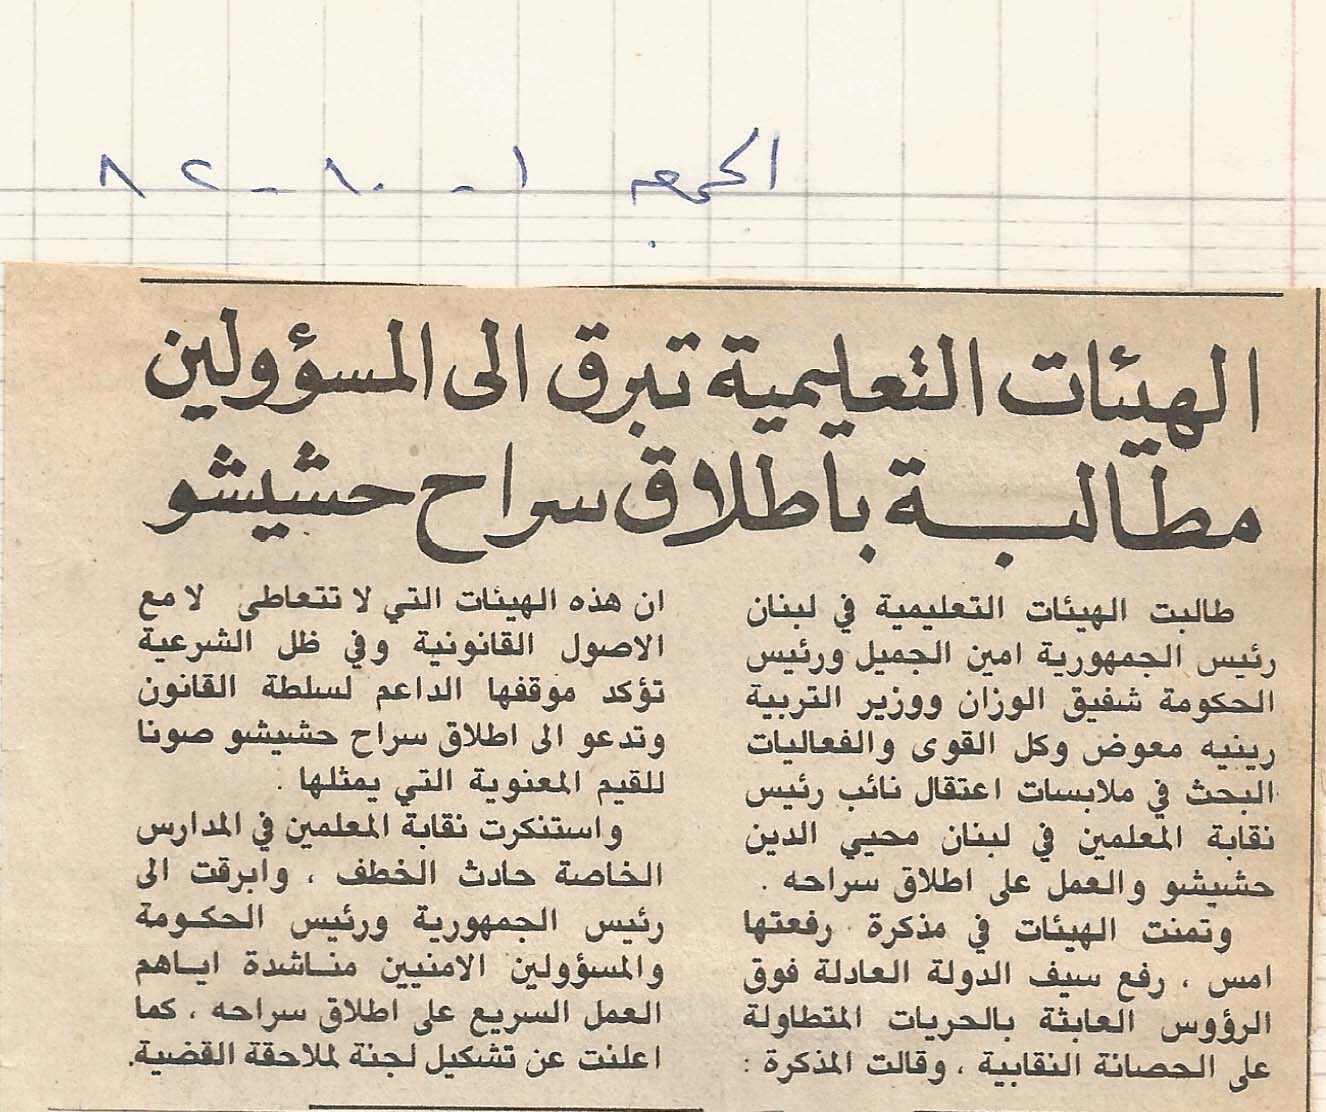 الجمعه ١ - ١٠ - ٨٢
الهيئات التعليمية تبرق الى المسؤولين
مطالبة باطلاق سراح حشيشو
طالبت الهيئات التعليمية في لبنان
رئيس الجمهورية امين الجميل ورئيس
الحكومة شفيق الوزان ووزير التربية
رينيه معوض وكل القوى والفعاليات
البحث في ملابسات اعتقال نائب رئيس
نقابة المعلمين في لبنان محيي الدين
حشيشو والعمل على اطلاق سراحه .
وتمنت الهيئات في مذكرة رفعتها
امس ، رفع سيف الدولة العادلة فوق
الرؤوس العابثة بالحريات المتطاولة
على الحصانة النقابية ، وقالت المذكرة :
ان هذه الهيئات التي لا تتعاطى لا مع
الاصول القانونية وفي ظل الشرعية
تؤكد موقفها الداعم لسلطة القانون
وتدعو الى اطلاق سراح حشيشو صونا
للقيم المعنوية التي يمثلها .
واستنكرت نقابة المعلمين في المدارس
الخاصة حادث الخطف ، وابرقت الى
رئيس الجمهورية ورئيس الحكومة
والمسؤولين الامنيين مناشدة اياهم
العمل السريع على اطلاق سراحه ، كما
اعلنت عن تشكيل لجنة لملاحقة القضية.